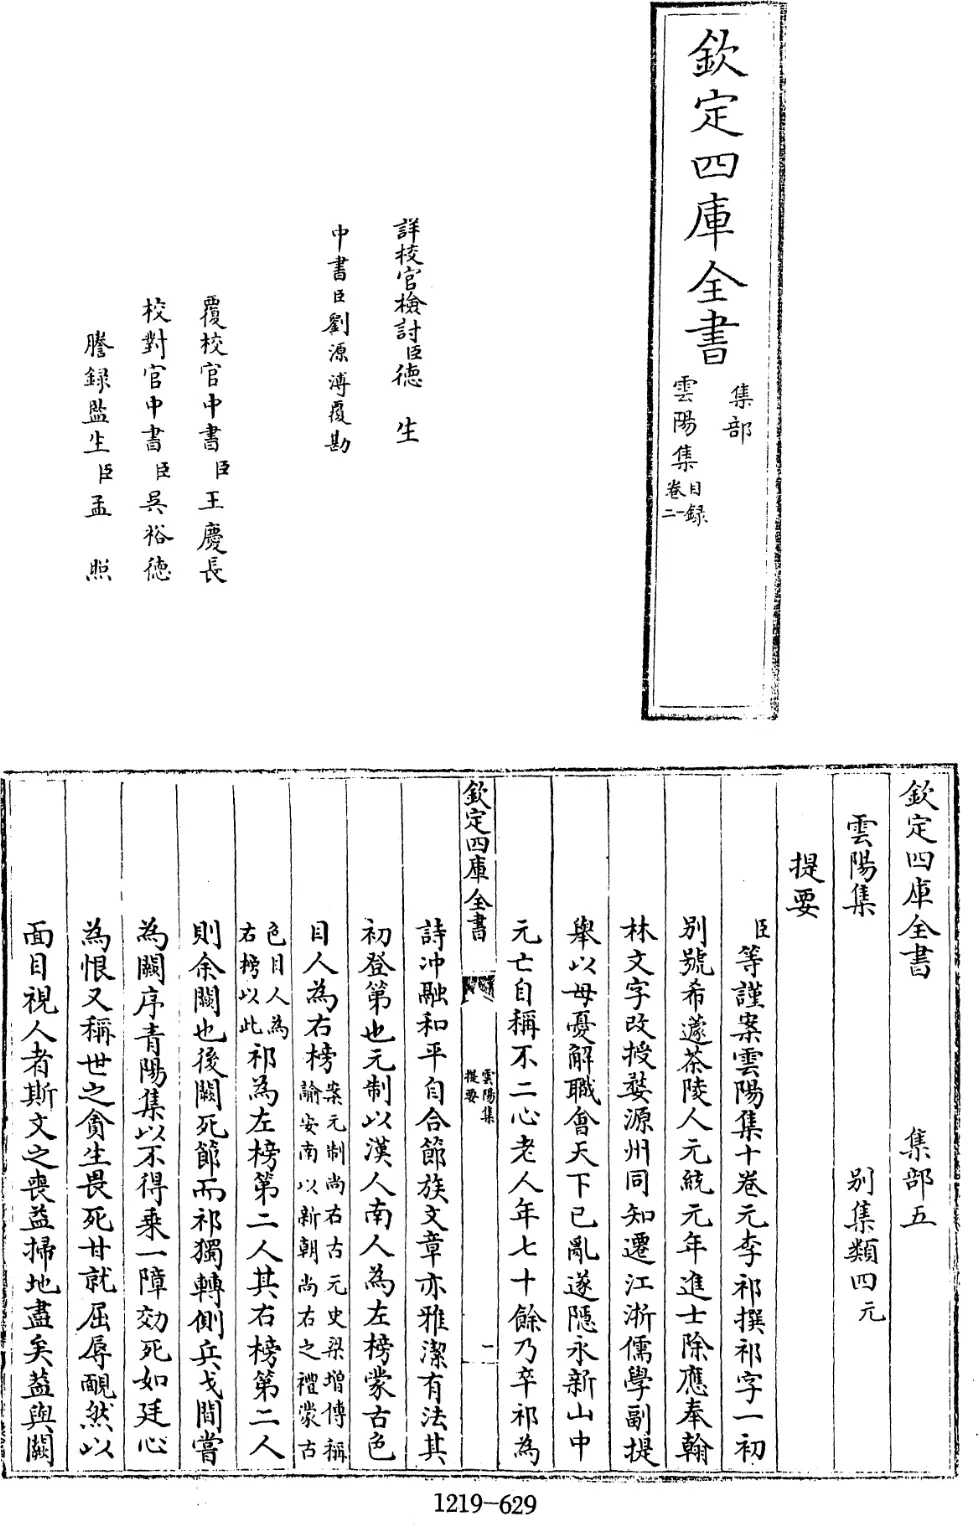 欽定四庫全書
集部
雲陽集
目録
卷一
二
詳校官檢討臣德生
中書臣劉源溥覆勘
覆校官中書臣王慶長
校對官中書臣吳裕德
謄録監生臣孟照
欽定四庫全書 集部五
雲陽集 别集類四元
提要
臣等謹案雲陽集十卷元李祁撰祁字一初
别號希蘧茶陵人元統元年進士除應奉翰
林文字改授婺源州同知遷江浙儒學副提
舉以母憂解職會天下已亂遂隱永新山中
元亡自稱不二心老人年七十餘乃卒祁為
欽定四庫全書
雲陽集
提要
一
詩沖融和平自合節族文章亦雅潔有法其
初登第也元制以漢人南人為左榜蒙古色
目人為右榜案元制尚右古元史梁增傳稱
諭安南以新朝尚右之禮蒙古
色目人為
右榜以此祁為左榜第二人其右榜第二人
則余闕也後闕死節而祁獨轉側兵戈間嘗
為闕序青陽集以不得乘一障効死如廷心
為恨又稱世之貪生畏死甘就屈辱靦然以
面目視人者斯文之喪益掃地盡矣葢與闕
1219-629